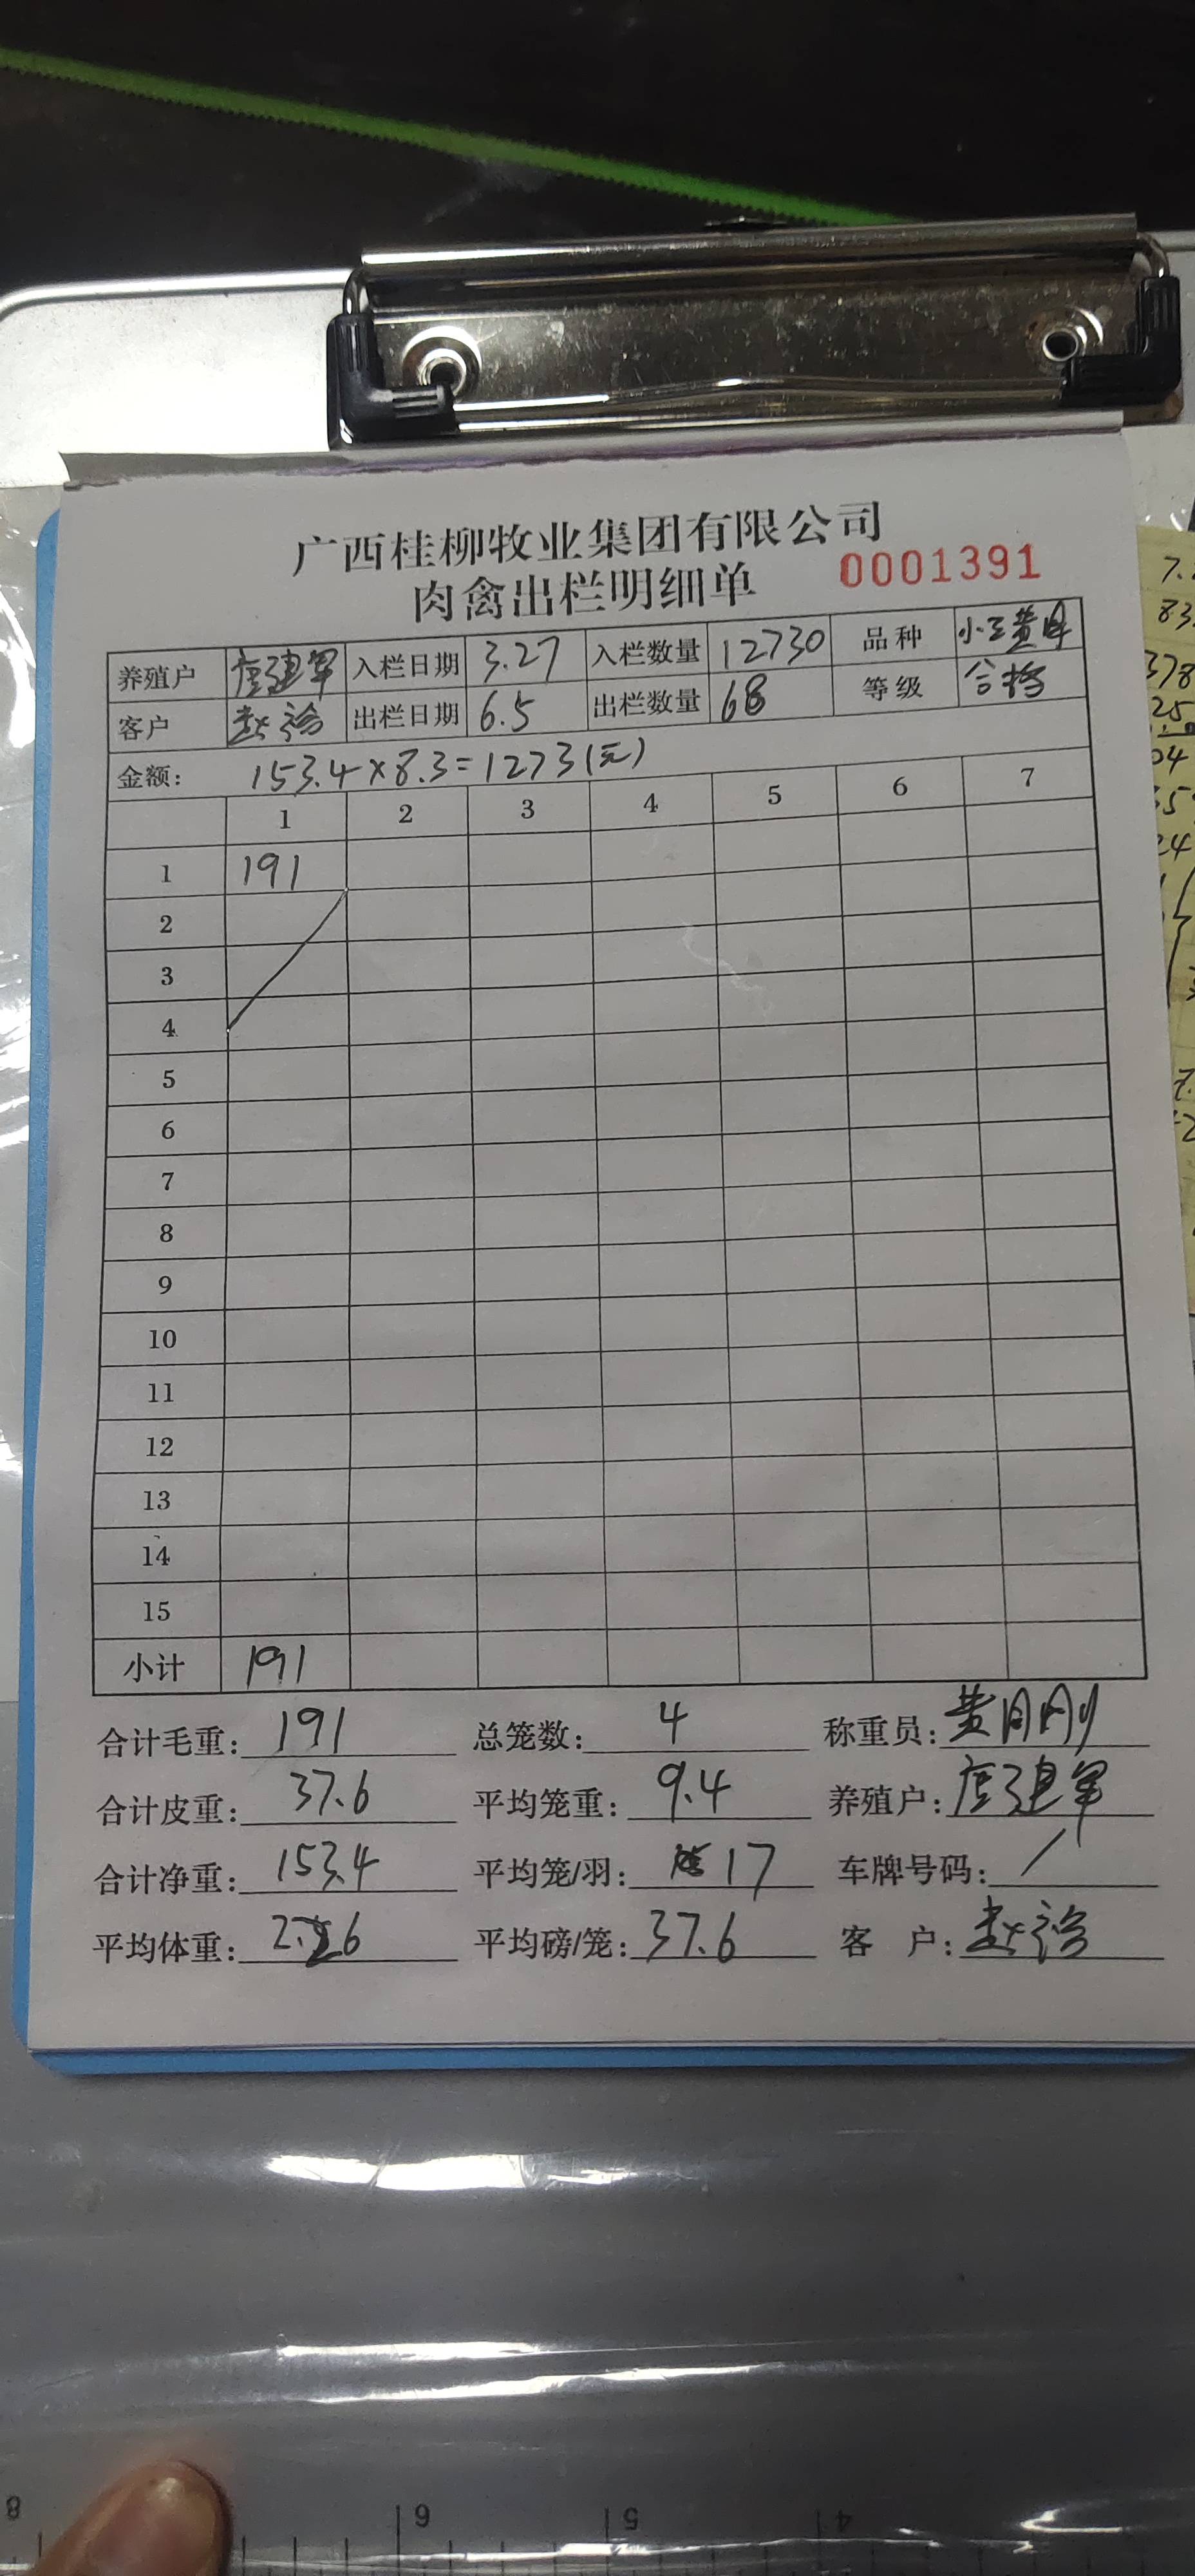 广西桂柳牧业集团有限公司
肉禽出栏明细单 0001391
养殖户 唐建军 入栏日期 3.27 入栏数量 12730 品种 小三黄
客户 出栏日期 6.5 出栏数量 68 等级 合格
金额: 153.4×8.3=1273(元)
1 2 3 4 5 6 7
1 191
2
3
4
5
6
7
8
9
10
11
12
13
14
15
小计 191
合计毛重: 191 总笼数: 4 称重员: 黄刚
合计皮重: 37.6 平均笼重: 9.4 养殖户: 唐建军
合计净重: 153.4 平均笼/羽: 17 车牌号码: /
平均体重: 2.26 平均磅/笼: 37.6 客户:
7.
83.
378
25.
04
55
24
8 6 5 4